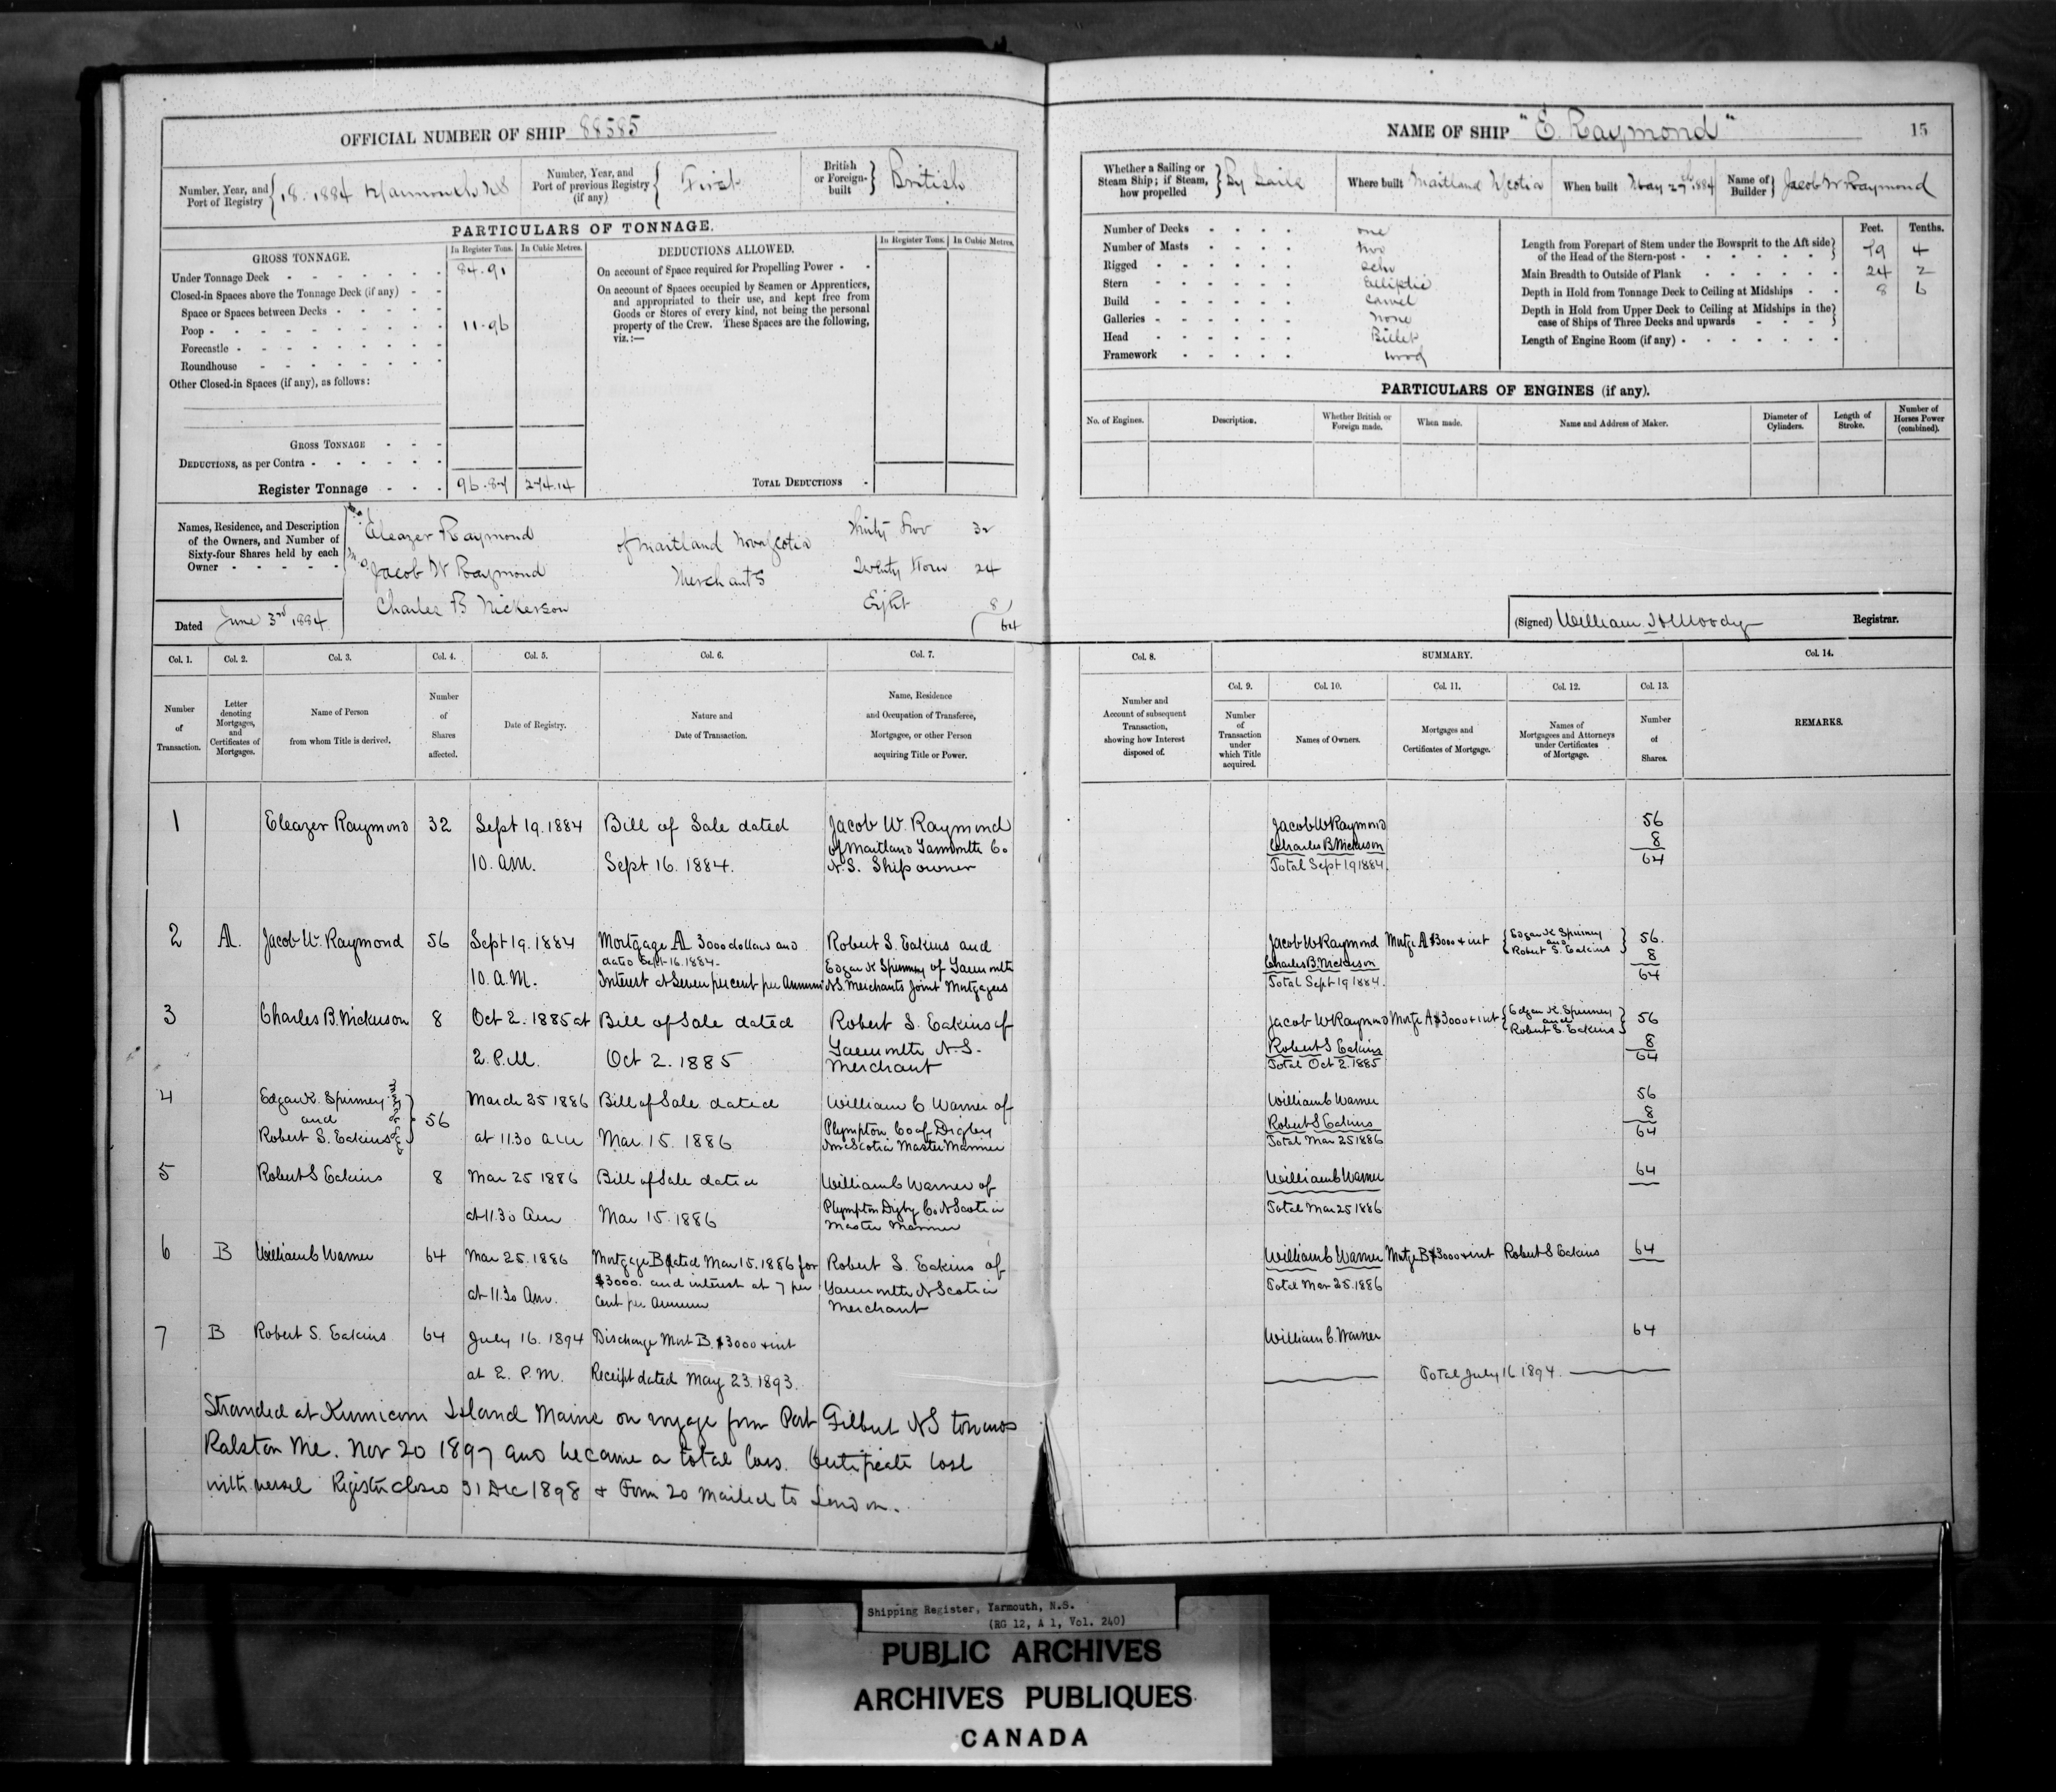 OFFICIAL NUMBER OF SHIP 88585
Number, Year, and Port of Registry { 18. 1884 Yarmouth NS
Number, Year, and Port of previous Registry (if any) { First
British or Foreign-built } British
PARTICULARS OF TONNAGE.
GROSS TONNAGE.
In Register Tons. In Cubic Metres.
Under Tonnage Deck 84.91
Closed-in Spaces above the Tonnage Deck (if any)
Space or Spaces between Decks
Poop 11.96
Forecastle
Roundhouse
Other Closed-in Spaces (if any), as follows:
GROSS TONNAGE
DEDUCTIONS, as per Contra
Register Tonnage 96.87 274.14
DEDUCTIONS ALLOWED.
In Register Tons. In Cubic Metres.
On account of Space required for Propelling Power
On account of Spaces occupied by Seamen or Apprentices,
and appropriated to their use, and kept free from
Goods or Stores of every kind, not being the personal
property of the Crew. These Spaces are the following,
viz.:—
TOTAL DEDUCTIONS
Names, Residence, and Description
of the Owners, and Number of
Sixty-four Shares held by each
Owner
Eleazer Raymond of Maitland Nova Scotia Thirty Two 32
Jacob W Raymond Merchants Twenty Four 24
Charles B Nickerson Eight 8
64
Dated June 3rd 1884
Col. 1. Col. 2. Col. 3. Col. 4. Col. 5. Col. 6. Col. 7.
Number of Transaction.
Letter denoting Mortgages, and Certificates of Mortgages.
Name of Person from whom Title is derived.
Number of Shares affected.
Date of Registry.
Nature and Date of Transaction.
Name, Residence and Occupation of Transferee, Mortgagee, or other Person acquiring Title or Power.
1 Eleazer Raymond 32 Sept 19. 1884 Bill of Sale dated Jacob W. Raymond
of Maitland Yarmouth Co
10. AM. Sept 16. 1884. N.S. Ship owner
2 A. Jacob W. Raymond 56 Sept 19. 1884 Mortgage A 3000 dollars and Robert S. Eakins and
dated Sept 16. 1884. Edgar K Spinney of Yarmouth
10. A.M. Interest at Seven per cent per Annum N.S. Merchants Joint Mortgagees
3 Charles B. Nickerson 8 Oct 2. 1885 at Bill of Sale dated Robert S. Eakins of
2. P.M. Oct 2. 1885 Yarmouth N.S.
Merchant
4 Edgar K. Spinney and Robert S. Eakins } 56 March 25 1886 Bill of Sale dated William C Warner of
Plympton Co of Digby
at 11.30 am Mar. 15. 1886 Nova Scotia Master Mariner
5 Robert S Eakins 8 Mar 25 1886 Bill of Sale dated William C Warner of
at 11.30 Am Mar 15. 1886 Plympton Digby Co N Scotia
Master Mariner
6 B William C Warner 64 Mar 25. 1886 Mortgage B dated Mar 15. 1886 for Robert S. Eakins of
$3000. and interest at 7 per Yarmouth N Scotia
at 11.30 Am. Cent per Annum Merchant
7 B Robert S. Eakins 64 July 16. 1894 Discharge Mort B. $3000 + int
at 2. P.M. Receipt dated May 23. 1893.
Stranded at Island Maine on voyage from Port Gilbert NS towards
Me. Nov 20 1897 and became a total loss. Certificate lost
with vessel Register closed 31 Dec 1898 + Form 20 mailed to London.
NAME OF SHIP "E. Raymond" 15
Whether a Sailing or Steam Ship; if Steam, how propelled } By Sails
Where built Maitland N Scotia
When built May 27th 1884
Name of Builder } Jacob W Raymond
Number of Decks one
Number of Masts two
Rigged Schr
Stern Elliptic
Build Carvel
Galleries None
Head Billet
Framework Wood
Feet. Tenths.
Length from Forepart of Stem under the Bowsprit to the Aft side of the Head of the Stern-post 79 4
Main Breadth to Outside of Plank 24 2
Depth in Hold from Tonnage Deck to Ceiling at Midships 8 6
Depth in Hold from Upper Deck to Ceiling at Midships in the case of Ships of Three Decks and upwards
Length of Engine Room (if any)
PARTICULARS OF ENGINES (if any).
No. of Engines. Description. Whether British or Foreign made. When made. Name and Address of Maker. Diameter of Cylinders. Length of Stroke. Number of Horses Power (combined).
(Signed) William H Moody Registrar.
Col. 8. SUMMARY. Col. 14.
Col. 9. Col. 10. Col. 11. Col. 12. Col. 13.
Number and Account of subsequent Transaction, showing how Interest disposed of.
Number of Transaction under which Title acquired.
Names of Owners.
Mortgages and Certificates of Mortgage.
Names of Mortgagees and Attorneys under Certificates of Mortgage.
Number of Shares.
REMARKS.
Jacob W Raymond 56
Charles B Nickerson 8
Total Sept 19 1884. 64
Jacob W Raymond Mortge A $3000 + int { Edgar K Spinney and Robert S. Eakins } 56
Charles B. Nickerson 8
Total Sept 19 1884. 64
Jacob W Raymond Mortge A $3000 + int { Edgar K. Spinney and Robert S. Eakins } 56
Robert S Eakins 8
Total Oct 2. 1885 64
William C Warner 56
Robert S Eakins 8
Total Mar 25 1886 64
William C Warner 64
Total Mar 25 1886
William C Warner Mortge B $3000 + int Robert S Eakins 64
Total Mar 25. 1886
William C. Warner 64
Total July 16 1894.
Shipping Register, Yarmouth, N.S.
(RG 12, A 1, Vol. 240)
PUBLIC ARCHIVES
ARCHIVES PUBLIQUES
CANADA